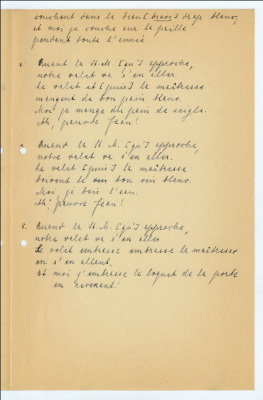 couchent dans le beau [beau] drap blanc,
et moi je couche sur la paille
pendant toute l'année
3. Quand la St M. [qu'] approche,
notre valet va s'en aller.
Le valet et [puis] la maîtresse
mangent du bon pain blanc.
Moi je mange du pain de seigle.
Ah, pauvre Jean!
4. Quand la St M. [qu'] approche,
notre valet va s'en aller.
Le valet [puis] la maîtresse
boivent le bon vin blanc.
Moi, je bois l'eau.
Ah! pauvre Jean!
5. Quand la St M. [qu'] approche,
notre valet va s'en aller
Le valet embrasse la maîtresse
en s'en allant.
Et moi j'embrasse le loquet de la porte
en